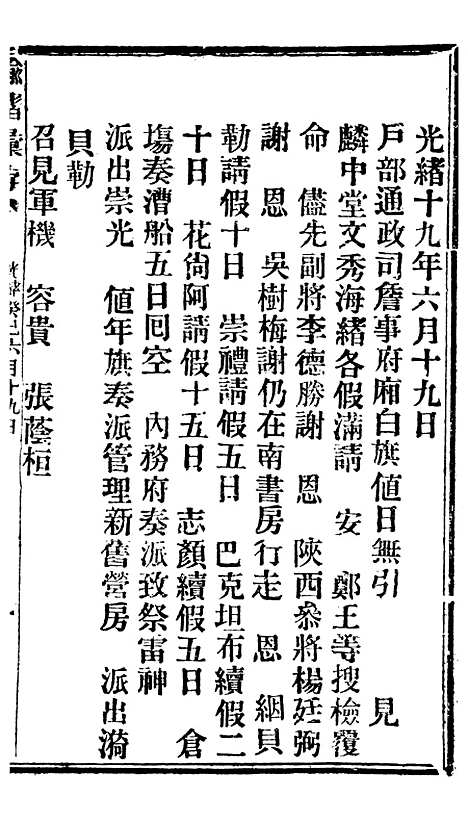 光緒十九年六月十九日
戶部通政司詹事府廂白旗値日無引　見
麟中堂文秀海緒各假滿請　安　鄭王等搜檢覆
命　儘先副將李德勝謝　恩　陝西叅將楊廷弼
謝　恩　吳樹梅謝仍在南書房行走　恩　綑貝
勒請假十日　崇禮請假五日　巴克坦布續假二
十日　花尙阿請假十五日　志顏續假五日　倉
塲奏漕船五日囘空　內務府奏派致祭雷神
派出崇光　値年旗奏派管理新舊營房　派出漪
貝勒
召見軍機　容貴　張蔭桓
諭摺彙存
光緒癸巳六月十九日